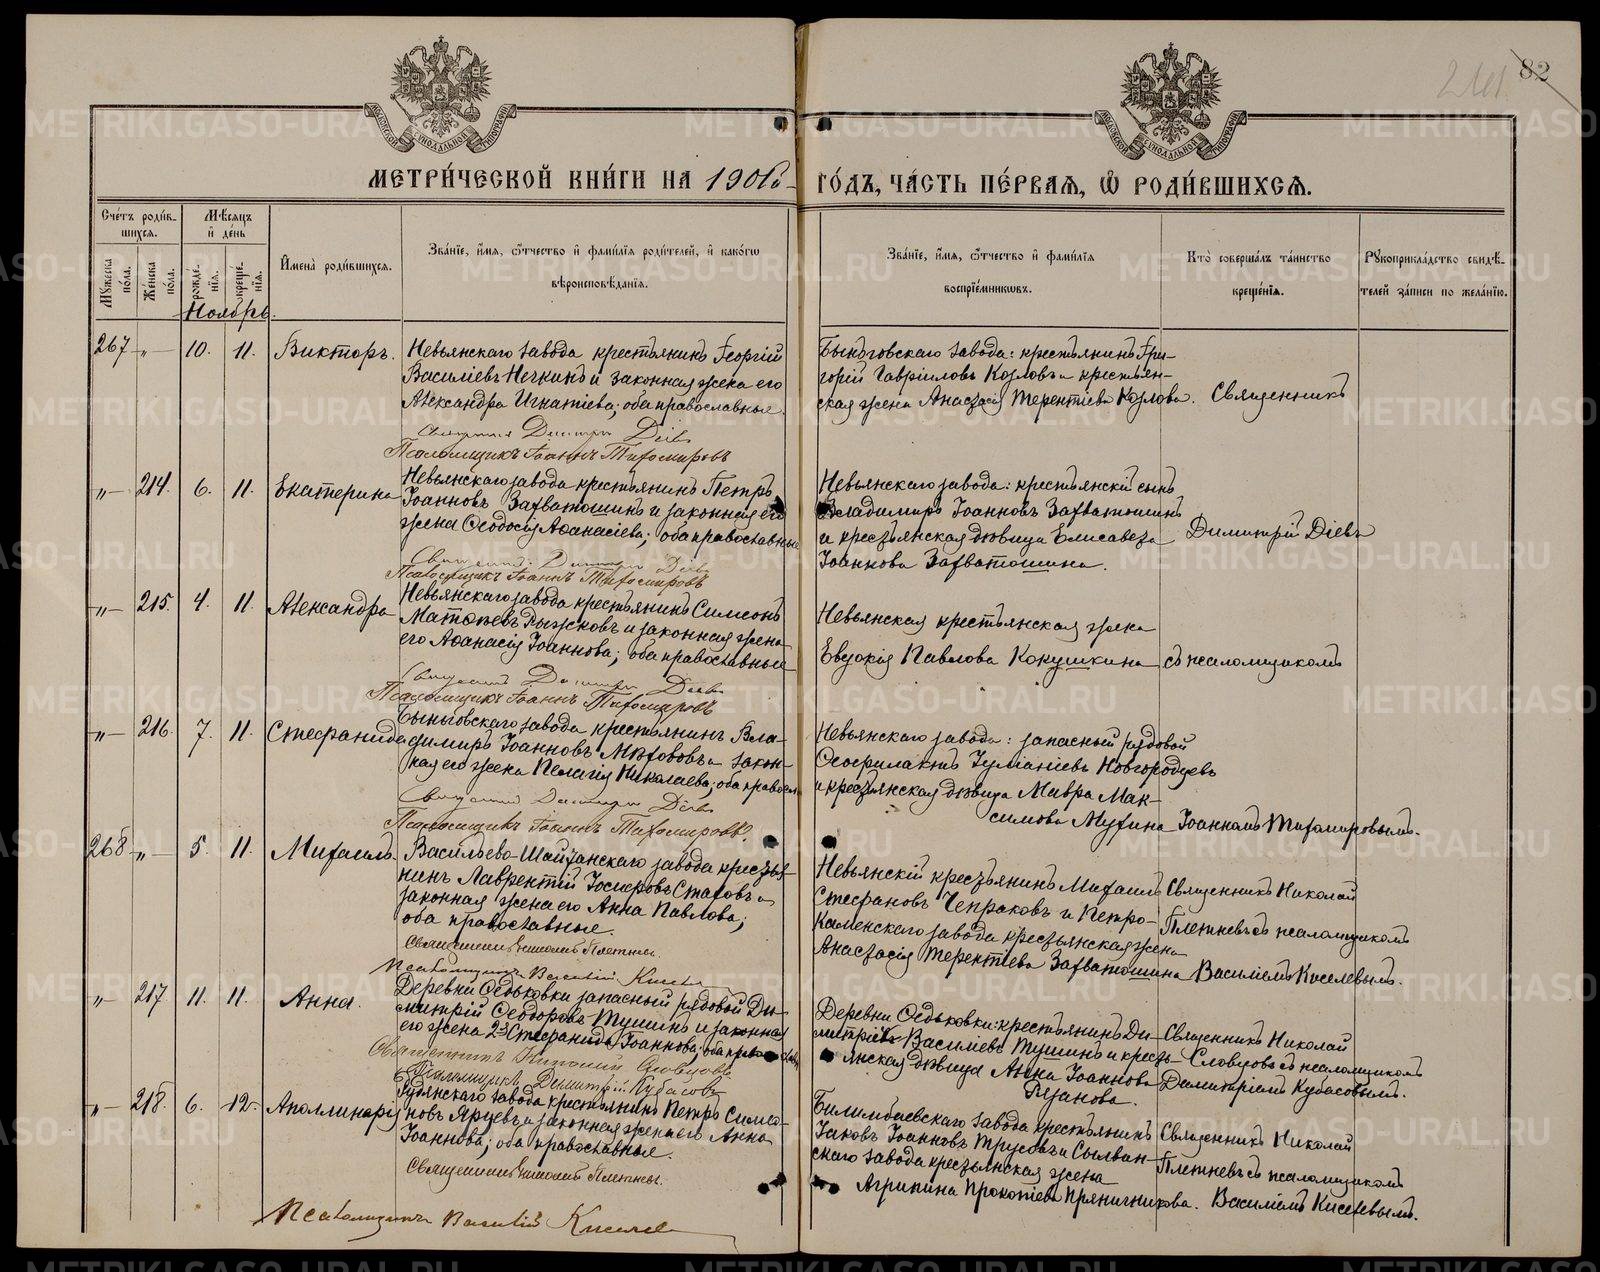 241
82
МОСКОВСКОЙ СѴНОДАЛЬНОЙ ТИПОГРАФІИ
МОСКОВСКОЙ СѴНОДАЛЬНОЙ ТИПОГРАФІИ
МЕТРИ́ЧЕСКОЙ КНИ́ГИ НА 1901й ГО́ДЪ, ЧА́СТЬ ПЕ́РВАЯ, Ѽ РОДИ́ВШИХСЯ.
Сче́тъ роди́в-
шихся.
Мѣ́сяцъ
и҆ де́нь
Мꙋ́жеска по́ла.
Же́нска по́ла.
рожде́нїѧ.
креще́нїѧ.
И҆мена̀ роди́вшихся.
Зва́нїе, и҆́мѧ, ѻ҆́тчество и҆ фами́лїѧ роди́телей, и҆ како́гѡ
вѣроисповѣ́данїѧ.
Зва́нїе, и҆́мѧ, ѻ҆́тчество и҆ фами́лїѧ
воспрїе́мникѡвъ.
Кто̀ соверша́лъ та́инство
креще́нїѧ.
Рꙋкоприкла́дство свидѣ́-
телей за́писи по жела́нїю.
Ноябрь.
267 „ 10. 11. Викторъ.
Невьянскаго завода крестьянинъ Георгій
Василіевъ Нечкинъ и законная жена его
Александра Игнатіева; оба православные.
Священникъ Димитрій Діевъ
Псаломщикъ Іоаннъ Тихомировъ
Быньговскаго завода: крестьянинъ Гри-
горій Гавріиловъ Козловъ и крестьян-
ская жена Анастасія Терентіева Козлова.
Священникъ
„ 214. 6. 11. Екатерина
Невьянскаго завода крестьянинъ Петръ
Іоанновъ Захватошинъ и законная его
жена Ѳеодосія Аѳанасіева; оба православные
Священникъ Димитрій Діевъ
Псаломщикъ Іоаннъ Тихомировъ
Невьянскаго завода: крестьянскій сынъ
Владимиръ Іоанновъ Захватошинъ
и крестьянская дѣвица Елисавета
Іоаннова Захватошина.
Димитрій Діевъ
„ 215. 4. 11. Александра
Невьянскаго завода крестьянинъ Симеонъ
Матѳіевъ Рыжковъ и законная жена
его Аѳанасія Іоаннова; оба православные
Священникъ Димитрій Діевъ
Псаломщикъ Іоаннъ Тихомировъ
Невьянская крестьянская жена
Евдокія Павлова Кокушкина
съ псаломщикомъ
„ 216. 7. 11. Стефанида
Быньговскаго завода крестьянинъ Вла-
димиръ Іоанновъ и закон-
ная его жена Пелагія Николаева; оба правосл
Священникъ Димитрій Діевъ
Псаломщикъ Іоаннъ Тихомировъ
Невьянскаго завода: запасный рядовой
Ѳеофилактъ Іуліаніевъ Новгородцевъ
и крестьянская дѣвица Мавра Мак-
симова Мухина
Іоанномъ Тихомировымъ.
268 „ 5. 11. Михаилъ.
Васильево-Шайтанскаго завода крестья-
нинъ Лаврентій Іосифовъ Стаховъ и
законная жена его Анна Павлова;
оба православные.
Священникъ Николай Плетневъ.
Псаломщикъ Василій Киселевъ
Невьянскій крестьянинъ Михаилъ
Стефановъ Чепраковъ и Петро-
Каменскаго завода крестьянская жена
Анастасія Терентіева Захватошина
Священникъ Николай
Плетневъ съ псаломщикомъ
Василіемъ Киселевымъ.
„ 217 11. 11. Анна.
Деревни Ѳедьковки запасный рядовой Ди-
митрій Ѳеодоровъ Тушинъ и законная
его жена Стефанида Іоаннова; оба православн
Священникъ Николай Словцовъ
Псаломщикъ Димитрій Кубасовъ
Деревни Ѳедьковки: крестьянинъ Ди-
митрій Василіевъ Тушинъ и кресть-
янская дѣвица Анна Іоаннова
Рязанова.
Священникъ Николай
Словцовъ съ псаломщикомъ
Димитріемъ Кубасовымъ.
„ 218. 6. 12. Аполлинарія
Рудянскаго завода крестьянинъ Петръ Симео-
новъ Ярцевъ и законная жена его Анна
Іоаннова; оба православные.
Священникъ Николай Плетневъ.
Псаломщикъ Василій Киселев
Билимбаевскаго завода крестьянинъ
Іаковъ Іоанновъ Трусовъ и Сылвин-
скаго завода крестьянская жена
Агрипина Прокопіева Пряничникова.
Священникъ Николай
Плетневъ съ псаломщикомъ
Василіемъ Киселевымъ.
METRIKI.GASO-URAL.RU